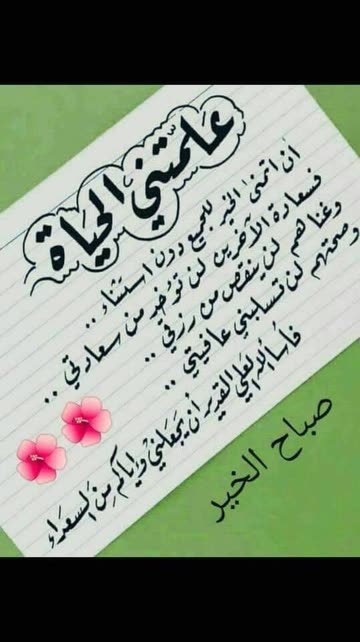 علمتني الحياة
ان اتمنى الخير للجميع دون استثناء ..
فسعادة الآخرين لن تؤخذ من سعادتي ..
وغناهم لن ينقص من رزقي ..
وصحتهم لن تسلبني عافيتي ..
فأسأل الله العلي القدير أن يجعلني وإياكم من السعداء
صباح الخير